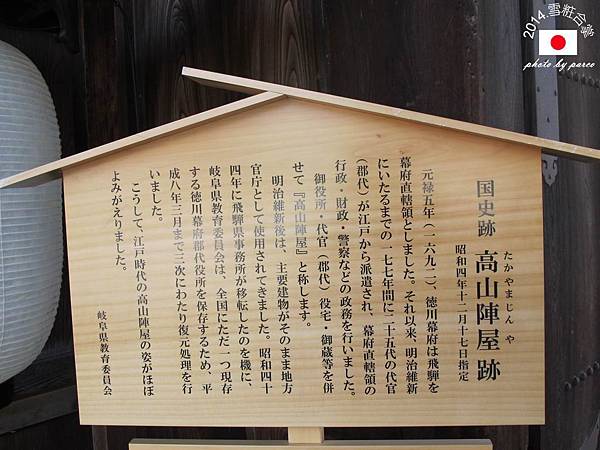 国史跡 高山陣屋跡
たかやまじんや
昭和四年十二月十七日指定
元禄五年(一六九二)、徳川幕府は飛騨を
幕府直轄領としました。それ以来、明治維新
にいたるまでの一七七年間に二十五代の代官
(郡代)が江戸から派遣され、幕府直轄領の
行政・財政・警察などの政務を行いました。
御役所・代官(郡代)役宅・御蔵等を併
せて『高山陣屋』と称します。
明治維新後は、主要建物がそのまま地方
官庁として使用されてきました。昭和四十
四年に飛騨県事務所が移転したのを機に、
岐阜県教育委員会は、全国にただ一つ現存
する徳川幕府郡代役所を保存するため、平
成八年三月まで三次にわたり復元処理を行
いました。
こうして、江戸時代の高山陣屋の姿がほぼ
よみがえりました。
岐阜県教育委員会
2014.雪粧合掌
photo by parco